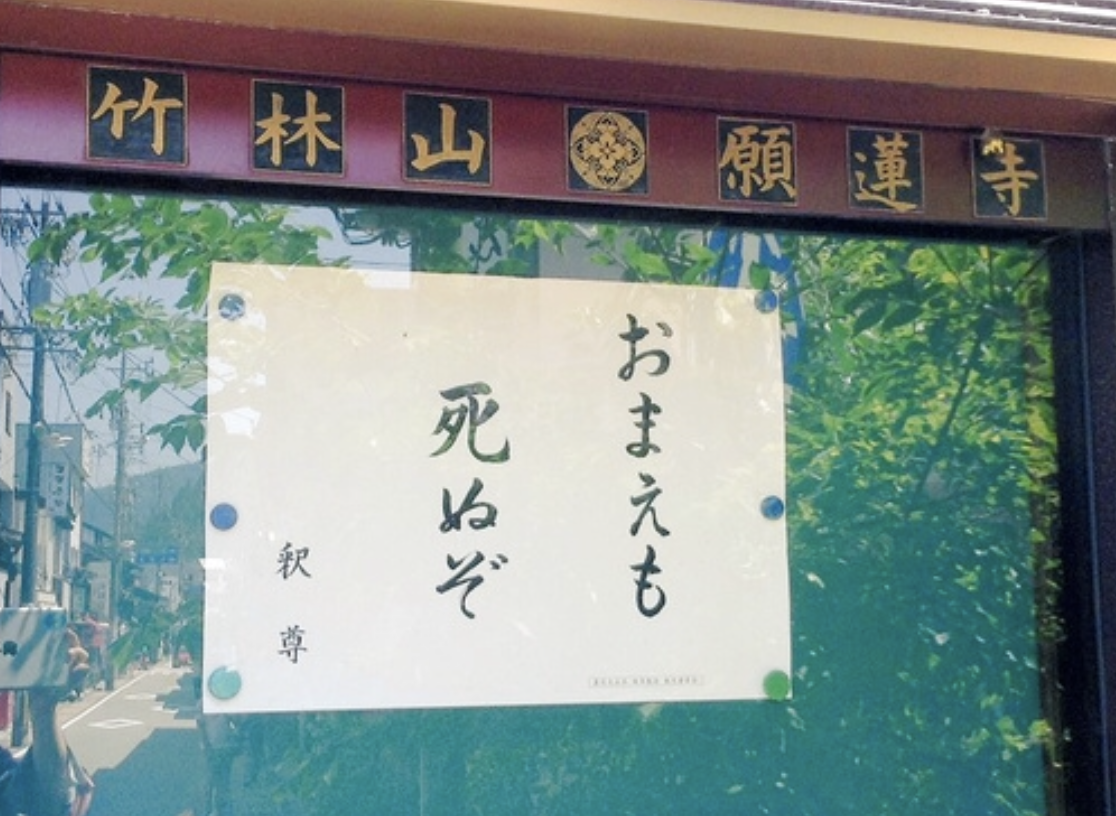 竹林山 願蓮寺
おまえも
死ぬぞ
釈尊